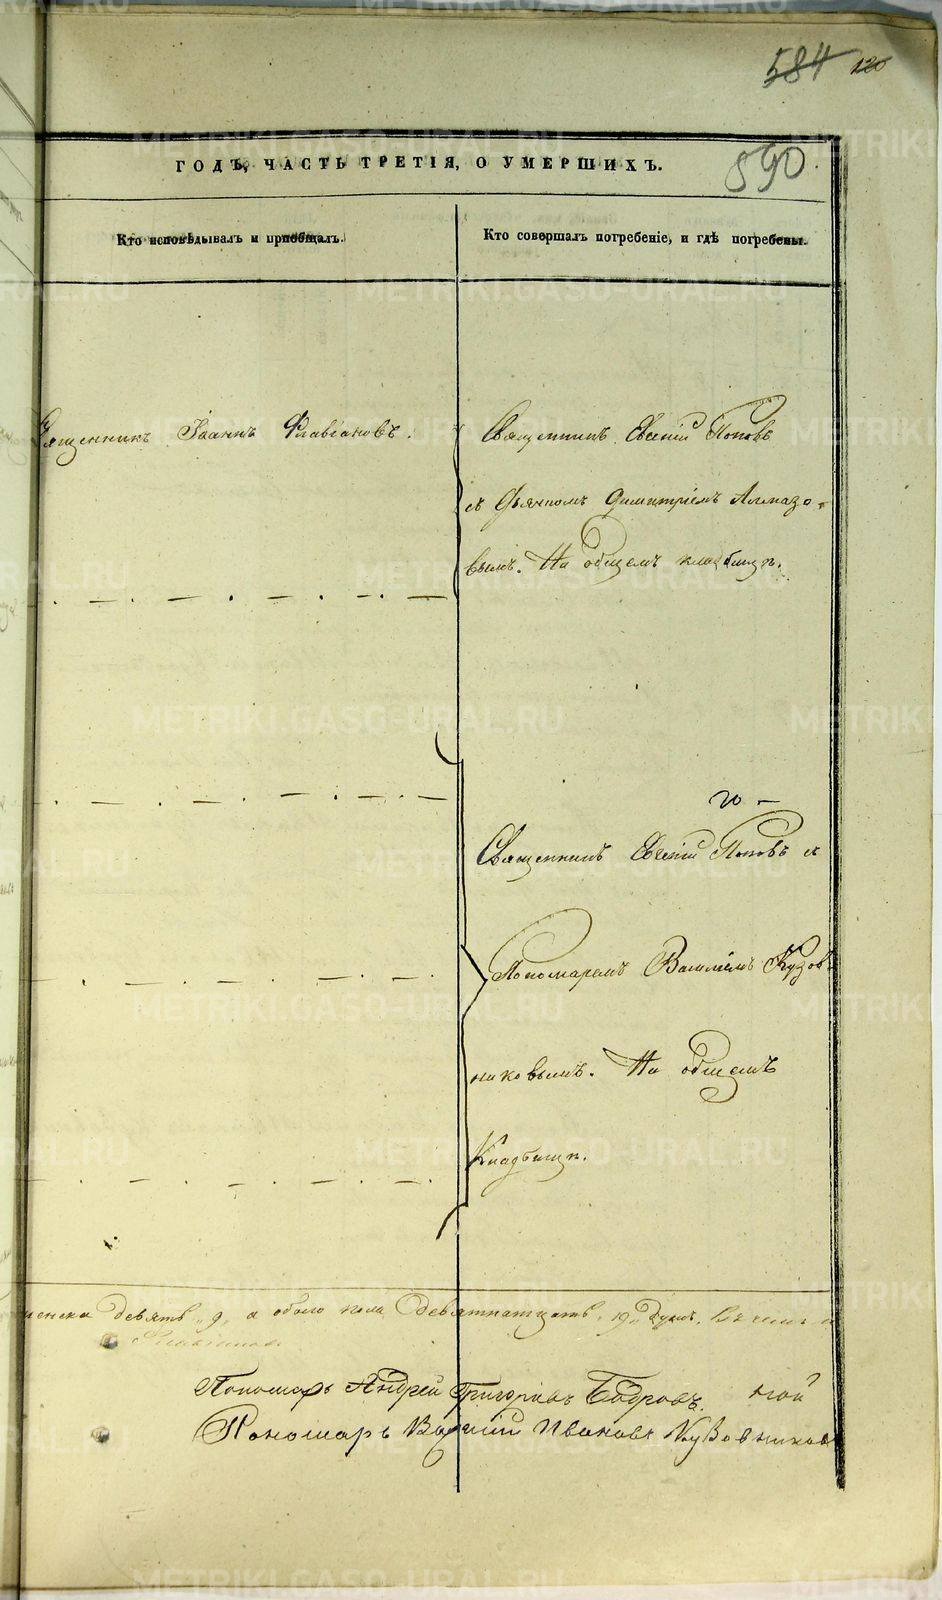 584 120
590.
ГОДЪ, ЧАСТЬ ТРЕТІЯ, О УМЕРШИХЪ.
Кто исповѣдывалъ и пріобщалъ.
Кто совершалъ погребеніе, и гдѣ погребены.
Священникъ Іоаннъ Флавіановъ.
Священникъ Евсеній Поповъ
съ Дьячкомъ Димитріемъ Алмазо-
вымъ. На общемъ кладбищѣ.
Священникъ Евсеній Поповъ съ
Пономаремъ Василіемъ Кузов-
никовымъ. На общемъ
Кладбищѣ.
женска девять „9„ а обоего пола девятнатцать „19„ душъ. Въ чемъ и
Пономарь Андрей Григорьевъ Бобровъ.
Пономарь Василій Ивановъ Кузовников
METRIKI.GASO-URAL.RU